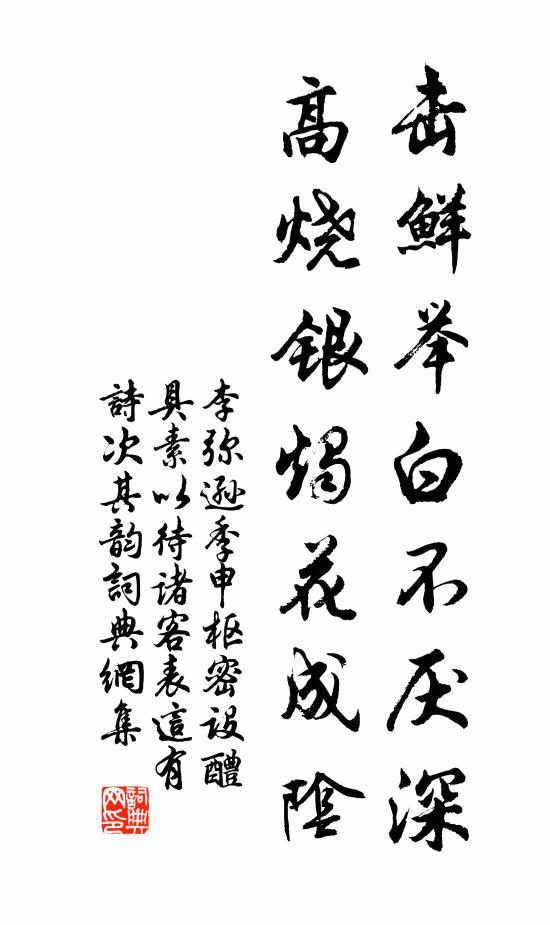 击鲜举白不厌深
高烧银烛花成阴
李弥逊季申枢密设醴
具素以待诸客表這有
詩次其韵詞典網集
詞典网印